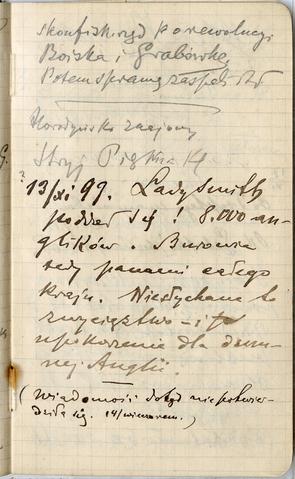 skonfiskował po rewolucyi
Boiska i Grabówkę
Potem sprawę
znajomy
Stryj Piękna 14
? 13/xi 99. Ladysmith
poddał się! 8.000 an-
glików. Burowie
są panami całego
kraju. Niesłychane to
zwycięstwo – i
upokorzenie dla dum-
nej Anglii.
(Wiadomość dotąd nie potwier-
dziła się. 14/ wieczorem.)